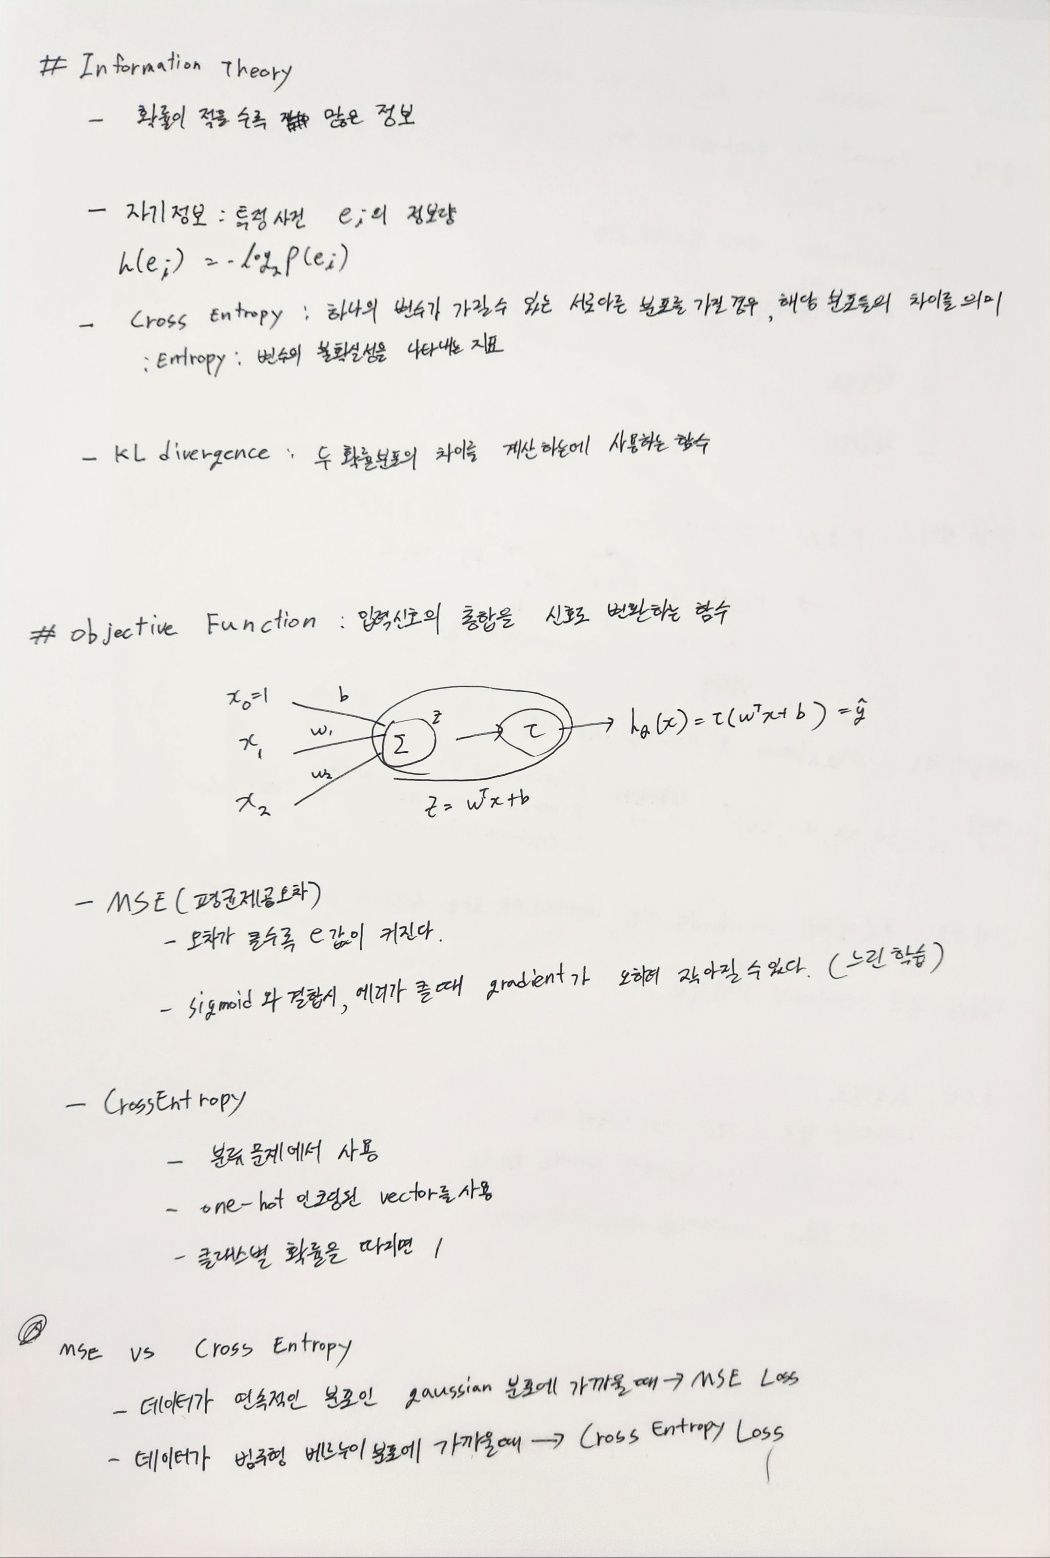 # Information Theory
- 확률이 적을 수록 많은 정보
- 자기정보 : 특정사건 e_i의 정보량
h(e_i) = -log₂P(e_i)
- Cross Entropy : 하나의 변수가 가질수 있는 서로다른 분포를 가질경우, 해당 분포들의 차이를 의미
: Entropy : 변수의 불확실성을 나타내는 지표
- KL divergence : 두 확률분포의 차이를 계산하는데 사용하는 함수
# Objective Function : 입력신호의 총합을 신호로 변환하는 함수
x₀=1 b
x₁ w₁ Σ z → τ → h_θ(x) = τ(wᵀx+b) = ŷ
x₂ w₂
z = wᵀx+b
- MSE (평균제곱오차)
- 오차가 클수록 e값이 커진다.
- sigmoid 와 결합시, 에러가 클때 gradient가 오히려 작아질 수 있다. (느린 학습)
- CrossEntropy
- 분류 문제에서 사용
- one-hot 인코딩된 vector를 사용
- 클래스별 확률을 따지면 1
MSE vs Cross Entropy
- 데이터가 연속적인 분포인 gaussian 분포에 가까울 때 → MSE Loss
- 데이터가 범주형 베르누이 분포에 가까울 때 → Cross Entropy Loss